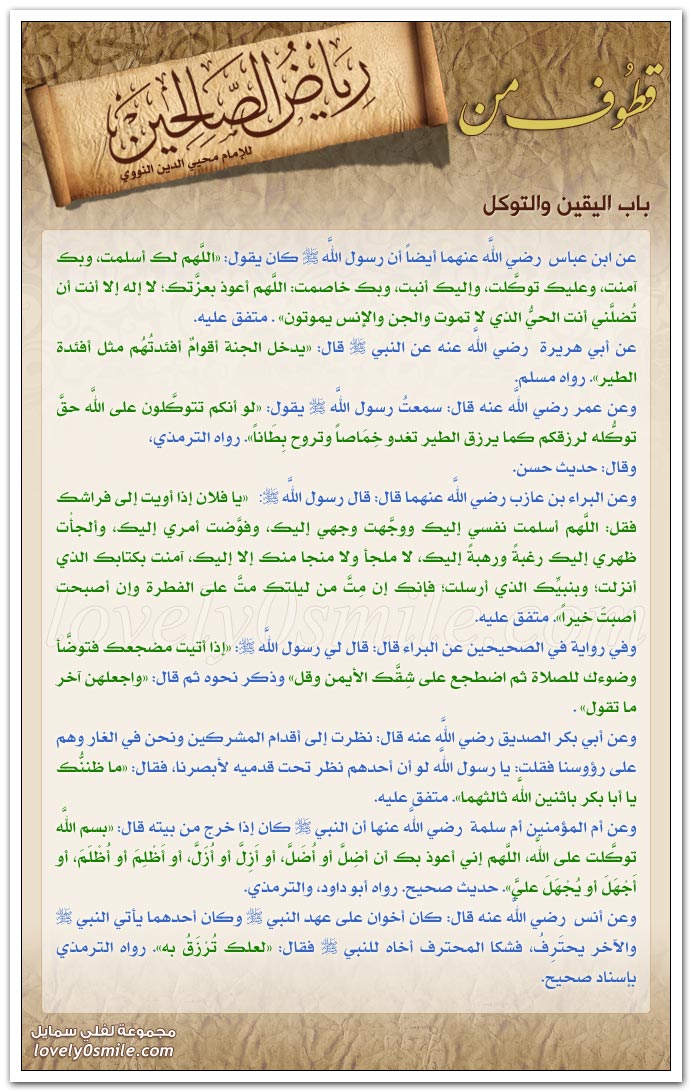 قطوف من
رِيَاضُ الصَّالِحِينَ
للإمام محيي الدين النووي
باب اليقين والتوكل
عن ابن عباس رضي اللَّه عنهما أيضاً أن رسول اللَّه ﷺ كان يقول: «اللَّهم لك أسلمت، وبك
آمنت، وعليك توكَّلت، وإليك أنبت، وبك خاصمت: اللَّهم أعوذ بعزَّتك؛ لا إله إلا أنت أن
تُضلَّني أنت الحيُّ الذي لا تموت والجن والإنس يموتون» . متفق عليه.
عن أبي هريرة رضي اللَّه عنه عن النبي ﷺ قال: «يدخل الجنة أقوامٌ أفئدتُهُم مثل أفئدة
الطير». رواه مسلم.
وعن عمر رضي اللَّه عنه قال: سمعتُ رسول اللَّه ﷺ يقول: «لو أنكم تتوكَّلون على اللَّه حقَّ
توكُّله لرزقكم كما يرزق الطير تغدو خِمَاصاً وتروح بِطَاناً». رواه الترمذي،
وقال: حديث حسن.
وعن البراء بن عازب رضي اللَّه عنهما قال: قال رسول اللَّه ﷺ: «يا فلان إذا أويت إلى فراشك
فقل: اللَّهم أسلمت نفسي إليك ووجَّهت وجهي إليك، وفوَّضت أمري إليك، وألجأْت
ظهري إليك رغبةً ورهبةً إليك، لا ملجأ ولا منجا منك إلا إليك، آمنت بكتابك الذي
أنزلت؛ وبنبيِّك الذي أرسلت؛ فإنك إن مِتَّ من ليلتك متَّ على الفطرة وإن أصبحت
أصبتَ خيراً». متفق عليه.
وفي رواية في الصحيحين عن البراء قال: قال لي رسول اللَّه ﷺ: «إذا أتيت مضجعك فتوضَّأ
وضوءك للصلاة ثم اضطجع على شِقِّك الأيمن وقل» وذكر نحوه ثم قال: «واجعلهن آخر
ما تقول» .
وعن أبي بكر الصديق رضي اللَّه عنه قال: نظرت إلى أقدام المشركين ونحن في الغار وهم
على رؤوسنا فقلت: يا رسول اللَّه لو أن أحدهم نظر تحت قدميه لأبصرنا، فقال: «ما ظننُّك
يا أبا بكر باثنين اللَّه ثالثهما». متفق عليه.
وعن أم المؤمنين أم سلمة رضي اللَّه عنها أن النبي ﷺ كان إذا خرج من بيته قال: «بسم اللَّه
توكَّلت على اللَّه، اللَّهم إني أعوذ بك أن أضِلَّ أو أُضَلَّ، أو أَزِلَّ أو أُزَلَّ، أو أَظْلِمَ أو أُظْلَمَ، أو
أَجْهَلَ أو يُجْهَلَ عليَّ». حديث صحيح. رواه أبو داود، والترمذي.
وعن أنس رضي اللَّه عنه قال: كان أخوان على عهد النبي ﷺ وكان أحدهما يأتي النبي ﷺ
والآخر يحترِفُ، فشكا المحترف أخاه للنبي ﷺ فقال: «لعلك تُرْزَقُ به». رواه الترمذي
بإسناد صحيح.
lovely0smile.com
مجموعة لفلي سمايل
lovely0smile.com